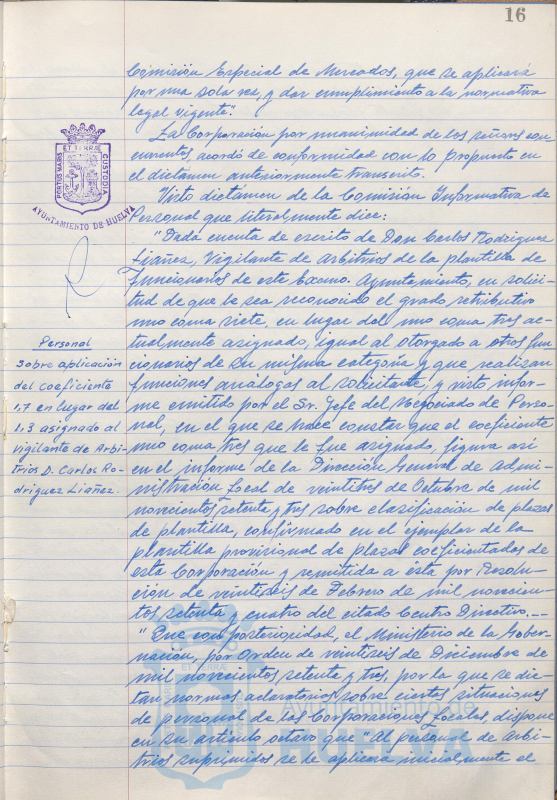 16
Comisión Especial de Mercados, que se aplicará
por una sola vez, y dar cumplimiento a la normativa
legal vigente".
La Corporación por unanimidad de los señores con-
currentes, acordó de conformidad con lo propuesto en
el dictamen anteriormente transcrito.
Visto dictámen de la Comisión Informativa de
Personal que literalmente dice:
"Dada cuenta de escrito de Don Carlos Rodríguez
Liáñez, Vigilante de Arbitrios de la plantilla de
funcionarios de este Excmo. Ayuntamiento, en solici-
tud de que le sea reconocido el grado retributivo
uno coma siete, en lugar del uno coma tres ac-
tualmente asignado, igual al otorgado a otros fun-
cionarios de su misma categoría y que realizan
funciones análogas al solicitante, y visto infor-
me emitido por el Sr. Jefe del Negociado de Perso-
nal, en el que se hace constar que el coeficiente
uno coma tres que le fue asignado, figura así
en el informe de la Dirección General de Admi-
nistración Local de veintitres de Octubre de mil
novecientos setenta y tres sobre clasificación de plazas
de plantilla, confirmado en el ejemplar de la
plantilla provisional de plazas coeficientadas de
esta Corporación y remitida a ésta por Resolu-
ción de veintiseis de Febrero de mil novecien-
tos setenta y cuatro del citado Centro Directivo.--
"Que con posterioridad, el Ministerio de la Gober-
nación, por Orden de veintiseis de Diciembre de
mil novecientos setenta y tres, por la que se dic-
tan normas aclaratorias sobre ciertas situaciones
de personal de las Corporaciones Locales, dispone
en su artículo octavo que "Al personal de arbi-
trios suprimidos se le aplicará inicialmente el
PORTUS MARIS ET TERRAE CUSTODIA
AYUNTAMIENTO DE HUELVA
Personal
Sobre aplicación
del coeficiente
1.7 en lugar del
1.3 asignado al
Vigilante de Arbi-
trios D. Carlos Ro-
driguez Liañez.
Ayuntamiento de
HUELVA